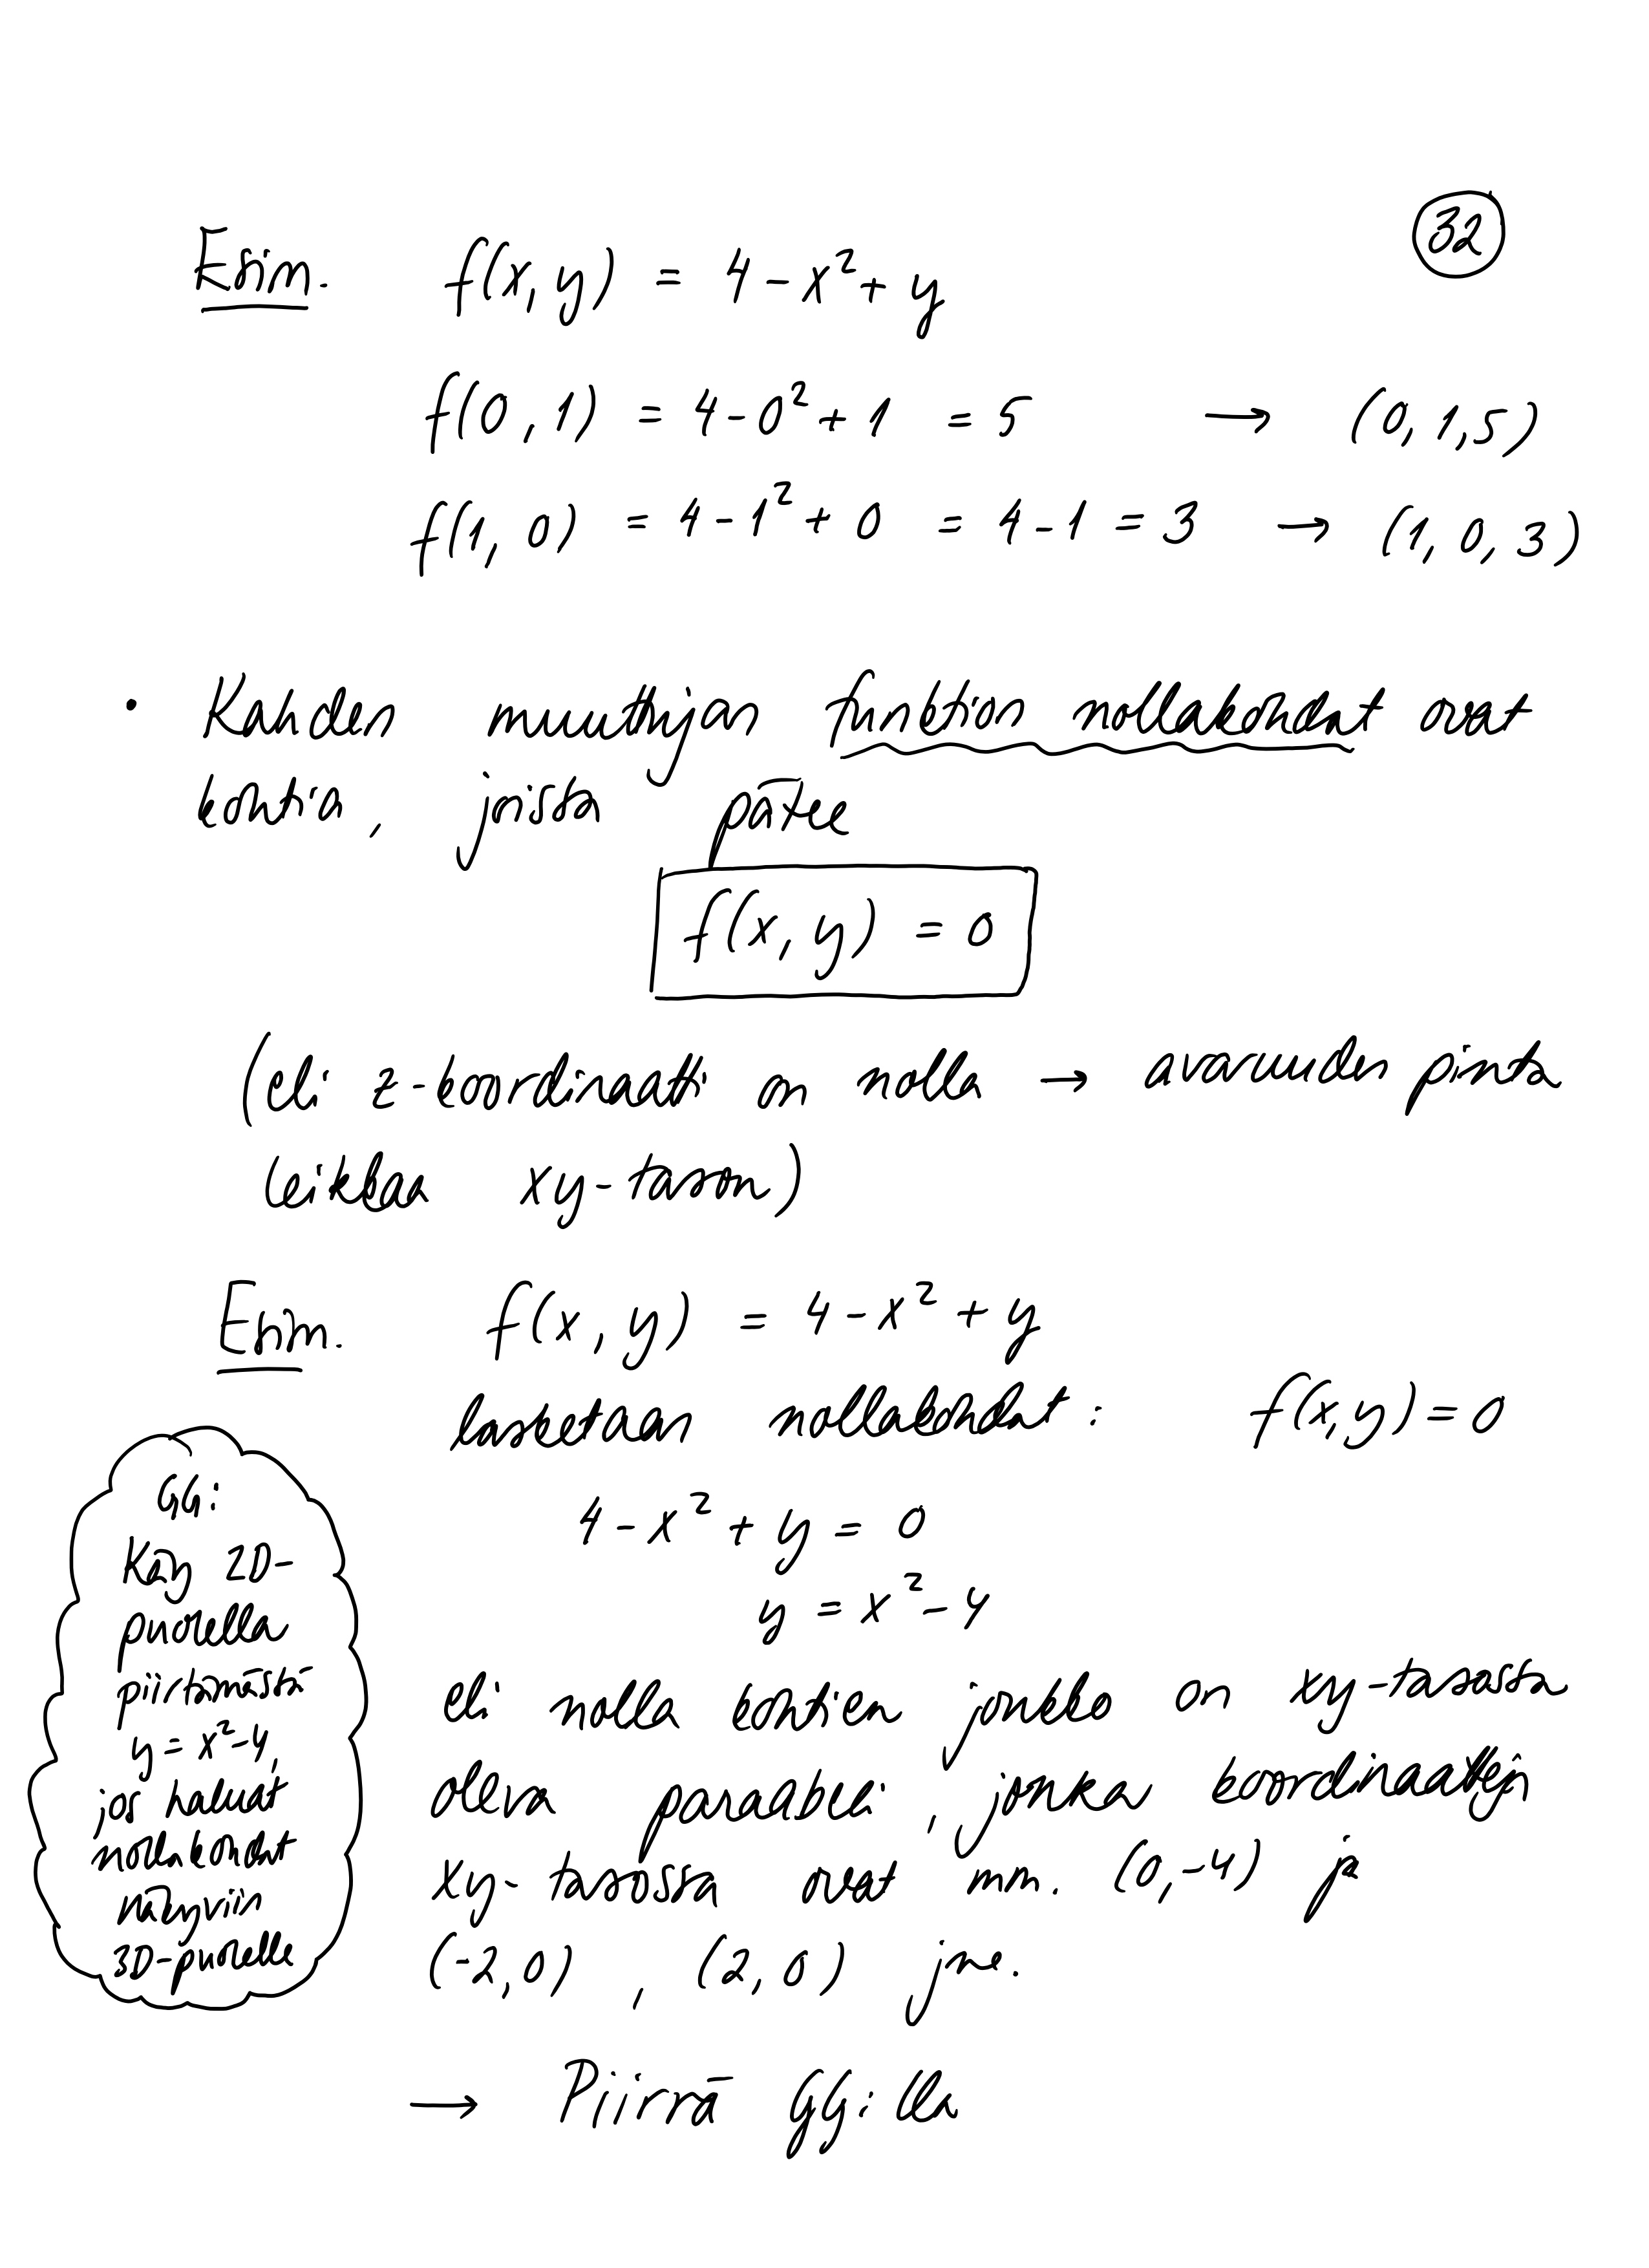 32
Esim. f(x, y) = 4 - x² + y
f(0, 1) = 4 - 0² + 1 = 5 → (0, 1, 5)
f(1, 0) = 4 - 1² + 0 = 4 - 1 = 3 → (1, 0, 3)
• Kahden muuttujan funktion nollakohdat ovat
kohtia, joissa pätee
f(x, y) = 0
(eli z-koordinaatti on nolla → avaruuden pinta
leikkaa xy-tason)
Esim. f(x, y) = 4 - x² + y
lasketaan nollakohdat: f(x, y) = 0
4 - x² + y = 0
y = x² - 4
eli nolla kohtien joukko on xy-tasossa
oleva paraabeli, jonka koordinaatteja
xy-tasossa ovat mm. (0, -4) ja
(-2, 0), (2, 0) jne.
→ Piirrä GG:lla
GG:
Käy 2D-
puolella
piirtämästä
y = x² - 4,
jos haluat
nollakohdat
näkyviin
3D-puolelle